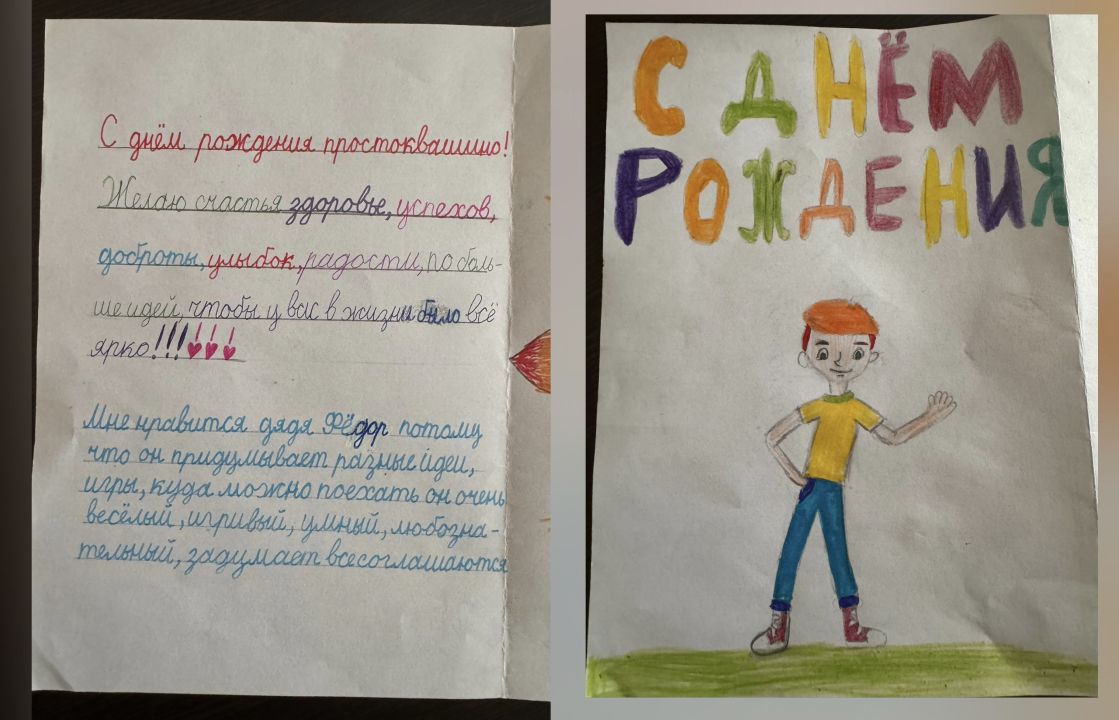 С днём рождения простоквашино!
Желаю счастья здоровье, успехов,
доброты, улыбок, радости, по боль-
ше идей, чтобы у вас в жизни было всё
ярко!!!!!!
Мне нравится дядя Фёдор потому
что он придумывает разные идеи,
игры, куда можно поехать он очень
весёлый, игривый, умный, любозна-
тельный, задумает все соглашаются
С ДНЁМ
РОЖДЕНИЯ